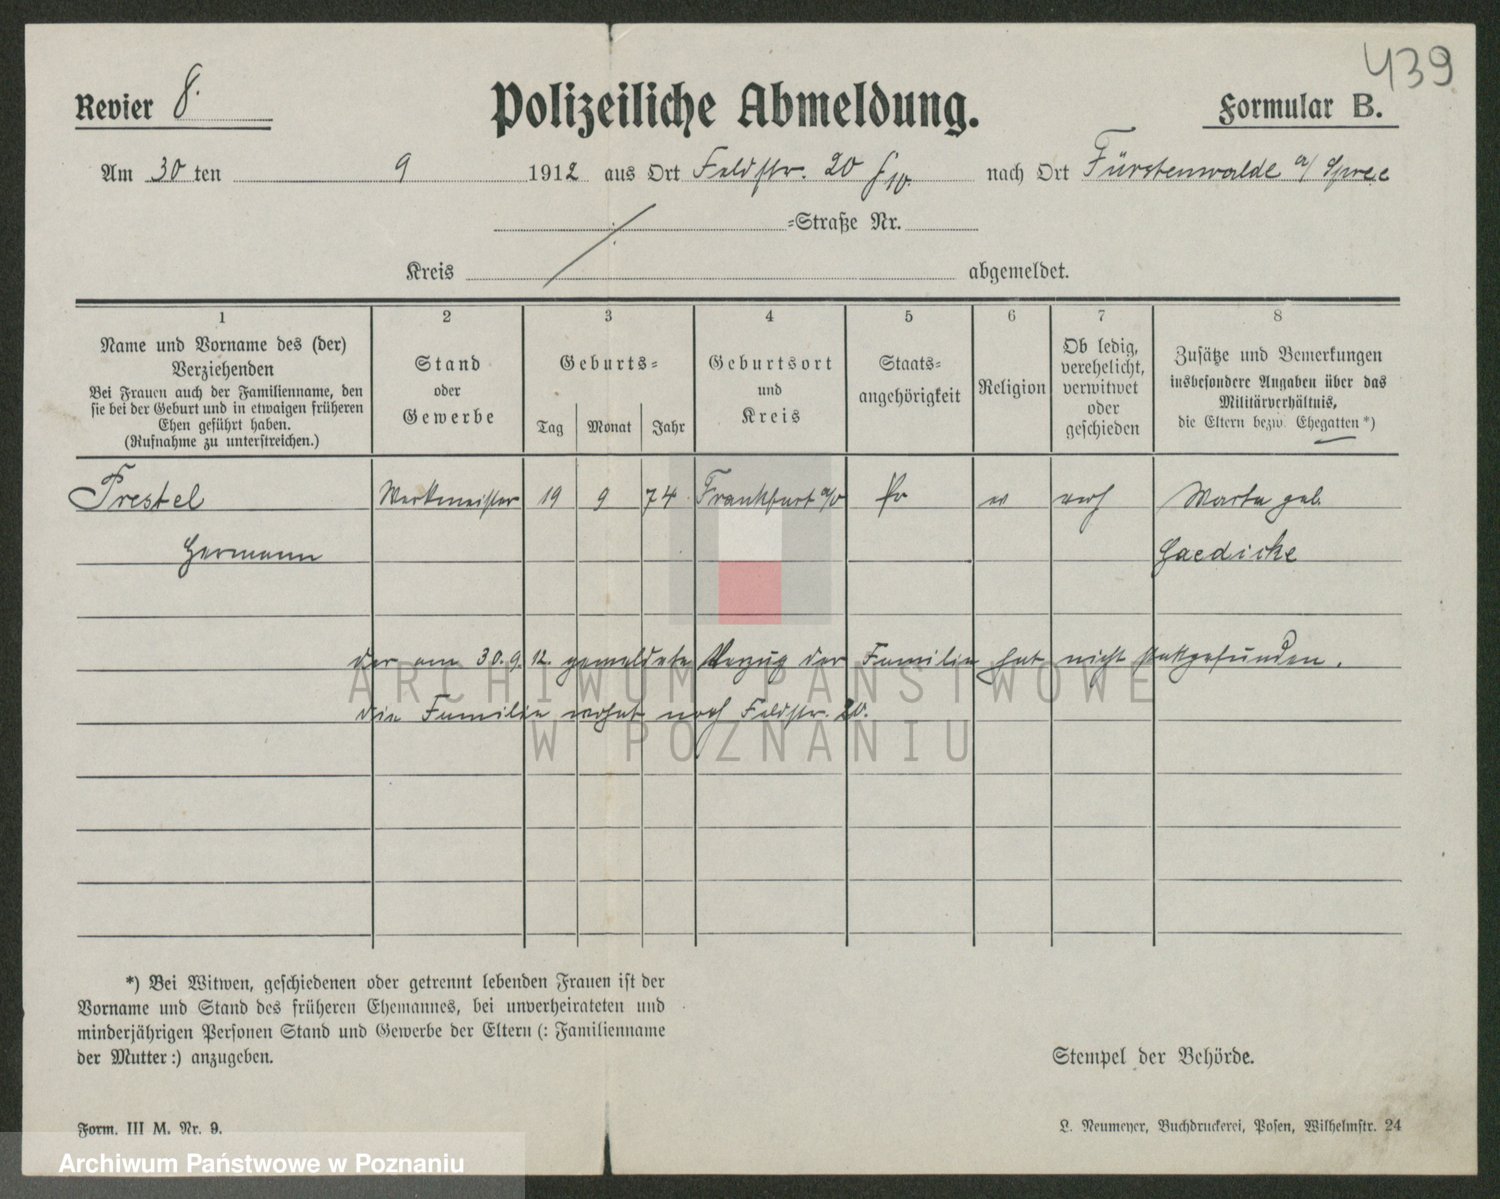 439
Revier 8.
Polizeiliche Abmeldung.
Formular B.
Am 30 ten 9 1912 aus Ort Feldstr. 20 nach Ort Fürstenwalde a/ Spree
=Straße Nr.
Kreis abgemeldet.
1 2 3 4 5 6 7 8
Name und Vorname des (der) Verziehenden
Bei Frauen auch der Familienname, den
sie bei der Geburt und in etwaigen früheren
Ehen geführt haben.
(Rufnahme zu unterstreichen.)
Stand
oder
Gewerbe
Geburts=
Tag Monat Jahr
Geburtsort
und
Kreis
Staats=
angehörigkeit
Religion
Ob ledig,
verehelicht,
verwitwet
oder
geschieden
Zusätze und Bemerkungen
insbesondere Angaben über das
Militärverhältnis,
die Eltern bezw. Ehegatten *)
Prestel Werkmeister 19 9 74 Frankfurt a/O Pr ev verh Marta geb.
Hermann Gaedicke
der am 30.9.12. gemeldete Verzug der Familie hat nicht stattgefunden.
die Familie wohnt noch Feldstr. 20.
ARCHIWUM PAŃSTWOWE
W POZNANIU
*) Bei Witwen, geschiedenen oder getrennt lebenden Frauen ist der
Vorname und Stand des früheren Ehemannes, bei unverheirateten und
minderjährigen Personen Stand und Gewerbe der Eltern (: Familienname
der Mutter :) anzugeben.
Stempel der Behörde.
Form. III M. Nr. 9.
L. Neumeyer, Buchdruckerei, Posen, Wilhelmstr. 24
Archiwum Państwowe w Poznaniu